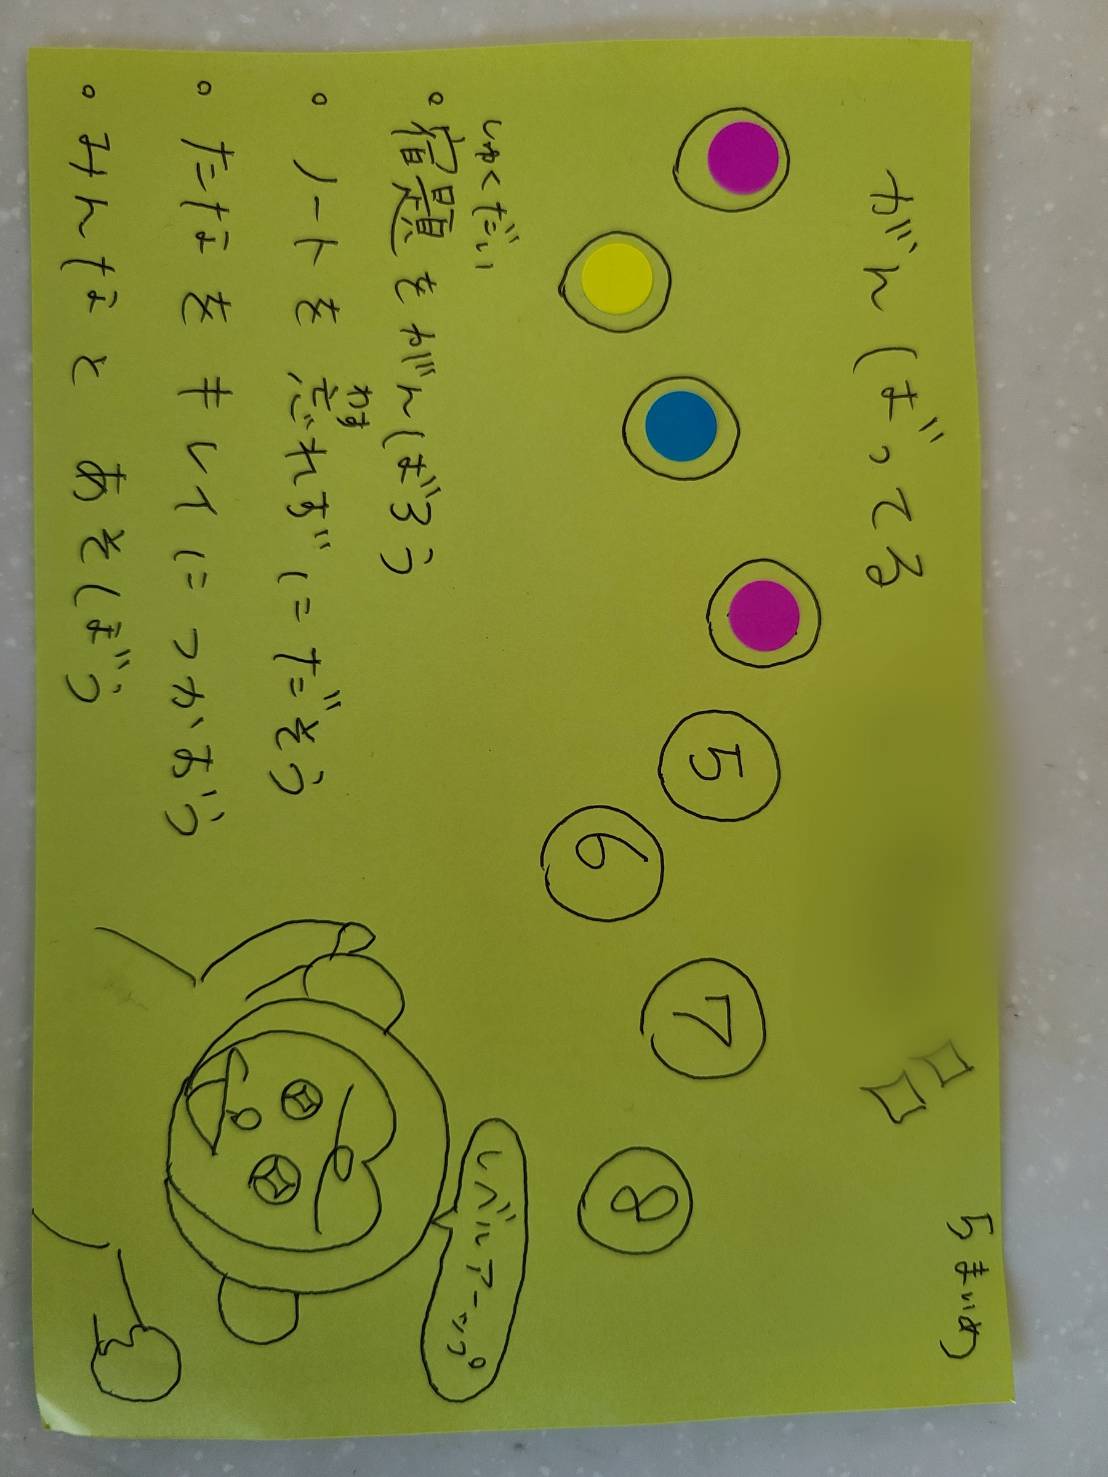 がんばってる
5まいめ
5
6
7
8
しゅくだい
・宿題をがんばろう
わす
・ノートを忘れずにだそう
・たなをキレイにつかおう
・みんなとあそぼう
レベルアーップ